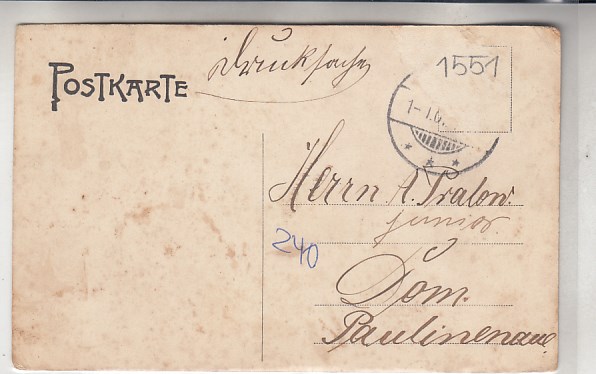 POSTKARTE
Drucksache
1551
Herrn A. Tralow.
junior.
240
Dom.
Paulinenaue